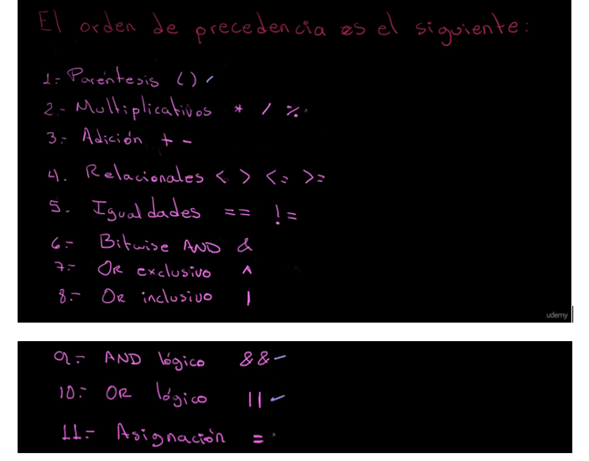 El orden de precedencia es el siguiente:
1.- Paréntesis ()
2.- Multiplicativos * / %
3.- Adición + -
4. Relacionales < > <= >=
5. Igualdades == !=
6.- Bitwise AND &
7.- OR exclusivo ^
8.- OR inclusivo |
udemy
9.- AND lógico &&
10.- OR lógico ||
11.- Asignación =